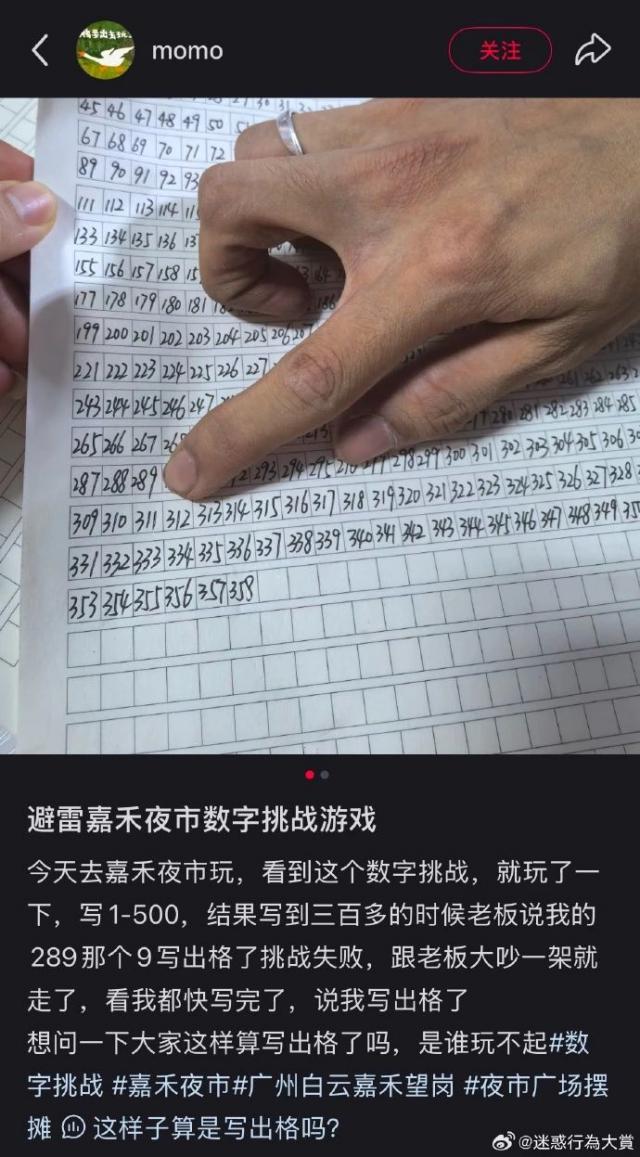 momo
关注
45 46 47 48 49 50
67 68 69 70 71 72
89 90 91 92 93
111 112 113 114
133 134 135 136
155 156 157 158
177 178 179 180 181
199 200 201 202 203 204 205 206 207
221 222 223 224 225 226 227
243 244 245 246 247
265 266 267 281 282 283 284 285
287 288 289 293 294 295 298 299 300 301 302 303 304 305 306
309 310 311 312 313 314 315 316 317 318 319 320 321 322 323 324 325 326 327 328
331 332 333 334 335 336 337 338 339 340 341 342 343 344 345 346 347 348 349 350
353 354 355 356 357 358
避雷嘉禾夜市数字挑战游戏
今天去嘉禾夜市玩，看到这个数字挑战，就玩了一
下，写1-500，结果写到三百多的时候老板说我的
289那个9写出格了挑战失败，跟老板大吵一架就
走了，看我都快写完了，说我写出格了
想问一下大家这样算写出格了吗，是谁玩不起#数
字挑战 #嘉禾夜市#广州白云嘉禾望岗 #夜市广场摆
摊 这样子算是写出格吗？
@迷惑行為大賞